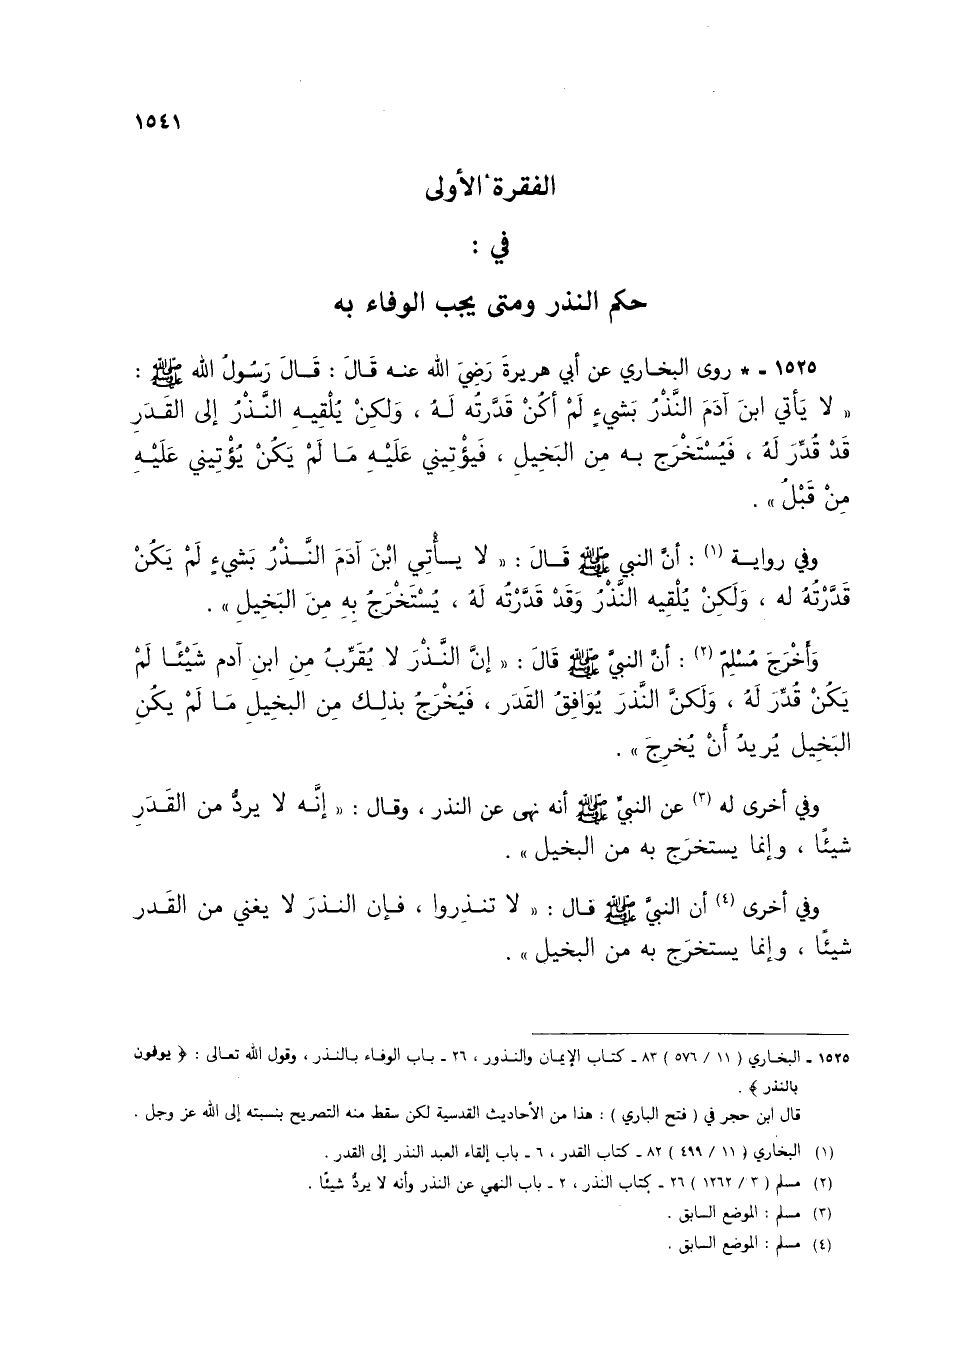 ١٥٤١
الفقرة الأولى
في :
حكم النذر ومتى يجب الوفاء به
١٥٢٥ - * روى البخاري عن أبي هريرةَ رَضِيَ الله عنه قَالَ : قَالَ رَسُولُ الله ﷺ :
« لا يَأتي ابنَ آدَمَ النَّذْرُ بَشيءٍ لَمْ أكُنْ قَدَّرتُه لَهُ ، وَلكِنْ يُلْقِيهِ النَّذْرُ إلى القَدَرِ
قَدْ قُدِّرَ لَهُ ، فَيُسْتَخْرَج بهِ مِن البَخيلِ ، فَيؤْتِيني عَلَيْهِ مَا لَمْ يَكُنْ يُؤْتِيني عَلَيْهِ
مِنْ قَبْلُ » .
وفي رواية (١) : أنَّ النبي ﷺ قَالَ : « لا يأتِي ابْنَ آدَمَ النَّذْرُ بَشيءٍ لَمْ يَكُنْ
قَدَّرْتُهُ له ، وَلَكِنْ يُلْقِيه النَّذْرُ وَقَدْ قَدَّرْتُه لَهُ ، يُسْتَخْرَجُ بِهِ مِنَ البَخيلِ » .
وَأَخْرَجَ مُسْلِمٌ (٢) : أنَّ النبيَّ ﷺ قَالَ : « إنَّ النَّذْرَ لا يُقَرِّبُ مِنِ ابنِ آدم شَيْئًا لَمْ
يَكُنْ قُدِّر لَهُ ، وَلَكنَّ النَّذرَ يُوَافِقُ القَدَر ، فَيُخْرَجُ بذلك مِن البخيلِ مَا لَمْ يكُنِ
البَخِيل يُريدُ أَنْ يُخرِجَ » .
وفي أخرى له (٣) عن النبيِّ ﷺ أنه نهى عن النذر ، وقال : « إنَّه لا يردُّ من القَدَرِ
شيئًا ، وإنما يستخرَج به من البخيل » .
وفي أخرى (٤) أن النبيَّ ﷺ قال : « لا تنذِروا ، فإن النذرَ لا يغني من القَدر
شيئًا ، وإنما يستخرَج به من البخيل » .
١٥٢٥ - البخاري ( ١١ / ٥٧٦ ) ٨٣ - كتاب الإيمان والنذور ، ٢٦ - باب الوفاء بالنذر ، وقول الله تعالى : ﴿ يوفون
بالنذر ﴾ .
قال ابن حجر في ( فتح الباري ) : هذا من الأحاديث القدسية لكن سقط منه التصريح بنسبته إلى الله عز وجل .
(١) البخاري ( ١١ / ٤٩٩ ) ٨٢ - كتاب القدر ، ٦ - باب إلقاء العبد النذر إلى القدر .
(٢) مسلم ( ٣ / ١٢٦٢ ) ٢٦ - كتاب النذر ، ٢ - باب النهي عن النذر وأنه لا يردُّ شيئًا .
(٣) مسلم : الموضع السابق .
(٤) مسلم : الموضع السابق .